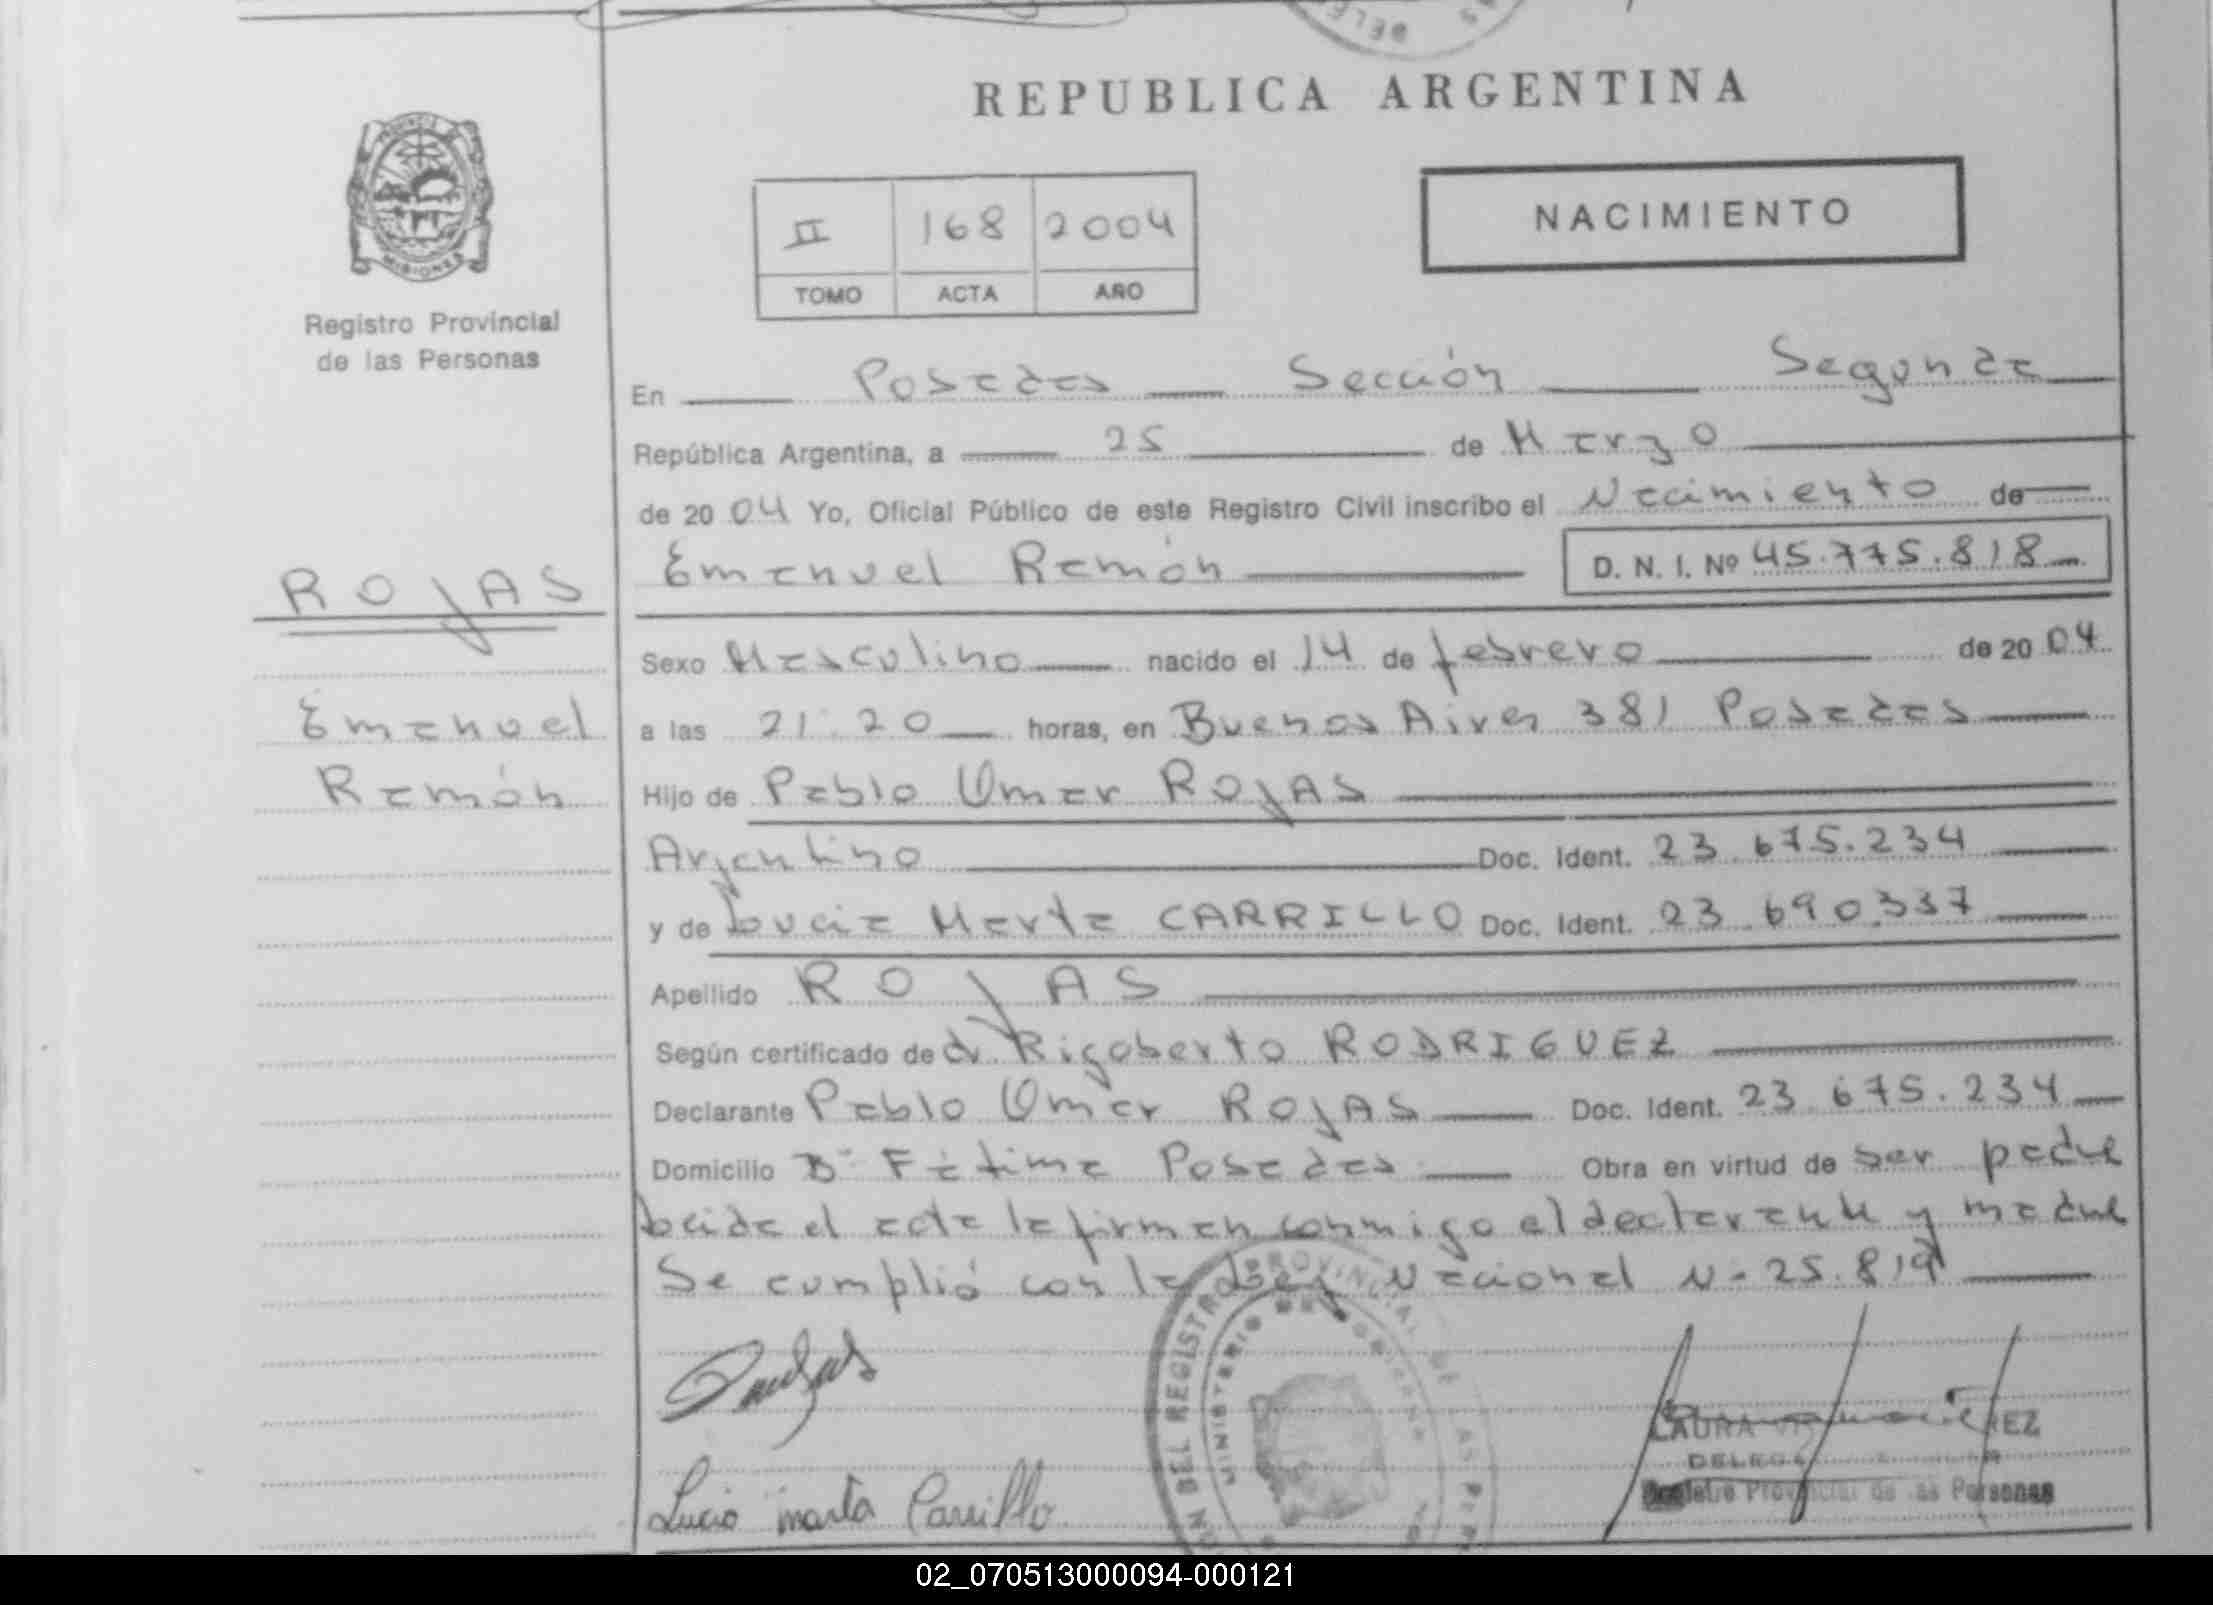 REPUBLICA ARGENTINA
PROVINCIA DE
MISIONES
Registro Provincial
de las Personas
II 168 2004
TOMO ACTA AÑO
NACIMIENTO
En Posadas Sección Segunda
República Argentina, a 25 de Marzo
de 2004 Yo, Oficial Público de este Registro Civil inscribo el Nacimiento de
Emanuel Ramón D. N. I. Nº 45.775.818
ROJAS
Emanuel
Ramón
Sexo Masculino nacido el 14 de febrero de 2004
a las 21:20 horas, en Buenos Aires 381 Posadas
Hijo de Pablo Omar ROJAS
Argentino Doc. Ident. 23.675.234
y de Lucia Marta CARRILLO Doc. Ident. 23.690.337
Apellido ROJAS
Según certificado de dr. Rigoberto RODRIGUEZ
Declarante Pablo Omar ROJAS Doc. Ident. 23.675.234
Domicilio Bº Fátima Posadas Obra en virtud de ser padre
Leida el acta la firman conmigo el declarante y madre
Se cumplió con la Ley Nacional Nº 25.819
Lucia Marta Carrillo
DEL REGISTRO PROVINCIAL DE LAS PER
MINISTERIO DE GOBIERNO
LAURA
Registro Provincial de las Personas
02_070513000094-000121